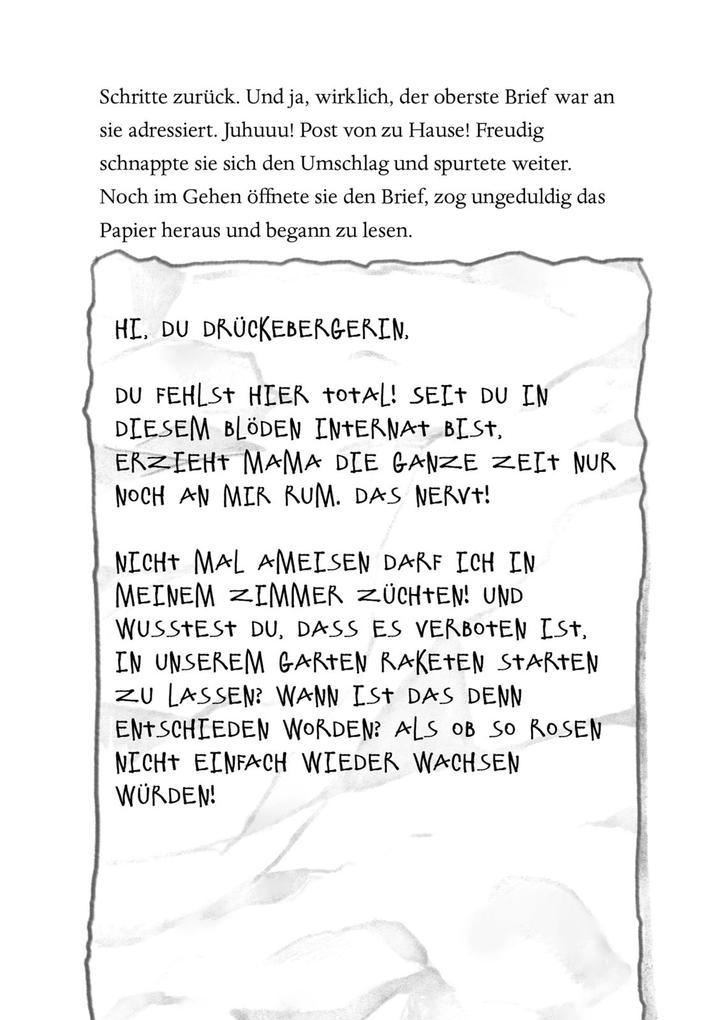 Schritte zurück. Und ja, wirklich, der oberste Brief war an
sie adressiert. Juhuuu! Post von zu Hause! Freudig
schnappte sie sich den Umschlag und spurtete weiter.
Noch im Gehen öffnete sie den Brief, zog ungeduldig das
Papier heraus und begann zu lesen.
HI, DU DRÜCKEBERGERIN,
DU FEHLST HIER TOTAL! SEIT DU IN
DIESEM BLÖDEN INTERNAT BIST,
ERZIEHT MAMA DIE GANZE ZEIT NUR
NOCH AN MIR RUM. DAS NERVT!
NICHT MAL AMEISEN DARF ICH IN
MEINEM ZIMMER ZÜCHTEN! UND
WUSSTEST DU, DASS ES VERBOTEN IST,
IN UNSEREM GARTEN RAKETEN STARTEN
ZU LASSEN? WANN IST DAS DENN
ENTSCHIEDEN WORDEN? ALS OB SO ROSEN
NICHT EINFACH WIEDER WACHSEN
WÜRDEN!